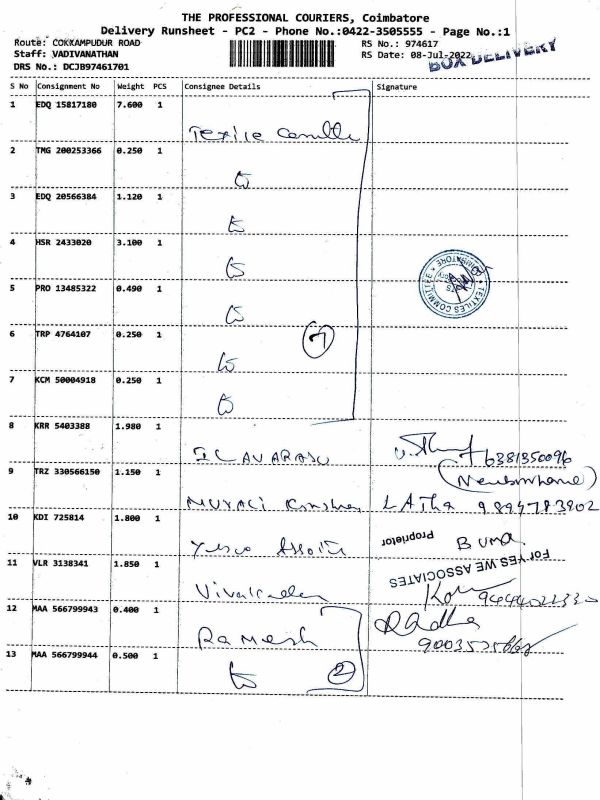 THE PROFESSIONAL COURIERS, Coimbatore
Delivery Runsheet - PC2 - Phone No.:0422-3505555 - Page No.:1
Route: COKKAMPUDUR ROAD
RS No.: 974617
Staff: VADIVANATHAN
RS Date: 08-Jul-2022
BOX DELIVERY
DRS No.: DCJB97461701
S No Consignment No Weight PCS Consignee Details Signature
1 EDQ 15817180 7.600 1
2 TMG 200253366 0.250 1
3 EDQ 20566384 1.120 1
4 HSR 2433020 3.100 1
5 PRO 13485322 0.490 1
TEXTILES COMMITTEE COIMBATORE
6 TRP 4764107 0.250 1
7
7 KCM 50004918 0.250 1
8 KRR 5403388 1.980 1
ILAVARASU 6381350096
9 TRZ 330566150 1.150 1
LATHA 9894783902
10 KDI 725814 1.800 1
Proprietor
For YES WE ASSOCIATES
11 VLR 3138341 1.850 1
12 MAA 566799943 0.400 1
Ramesh Radha
13 MAA 566799944 0.500 1
2